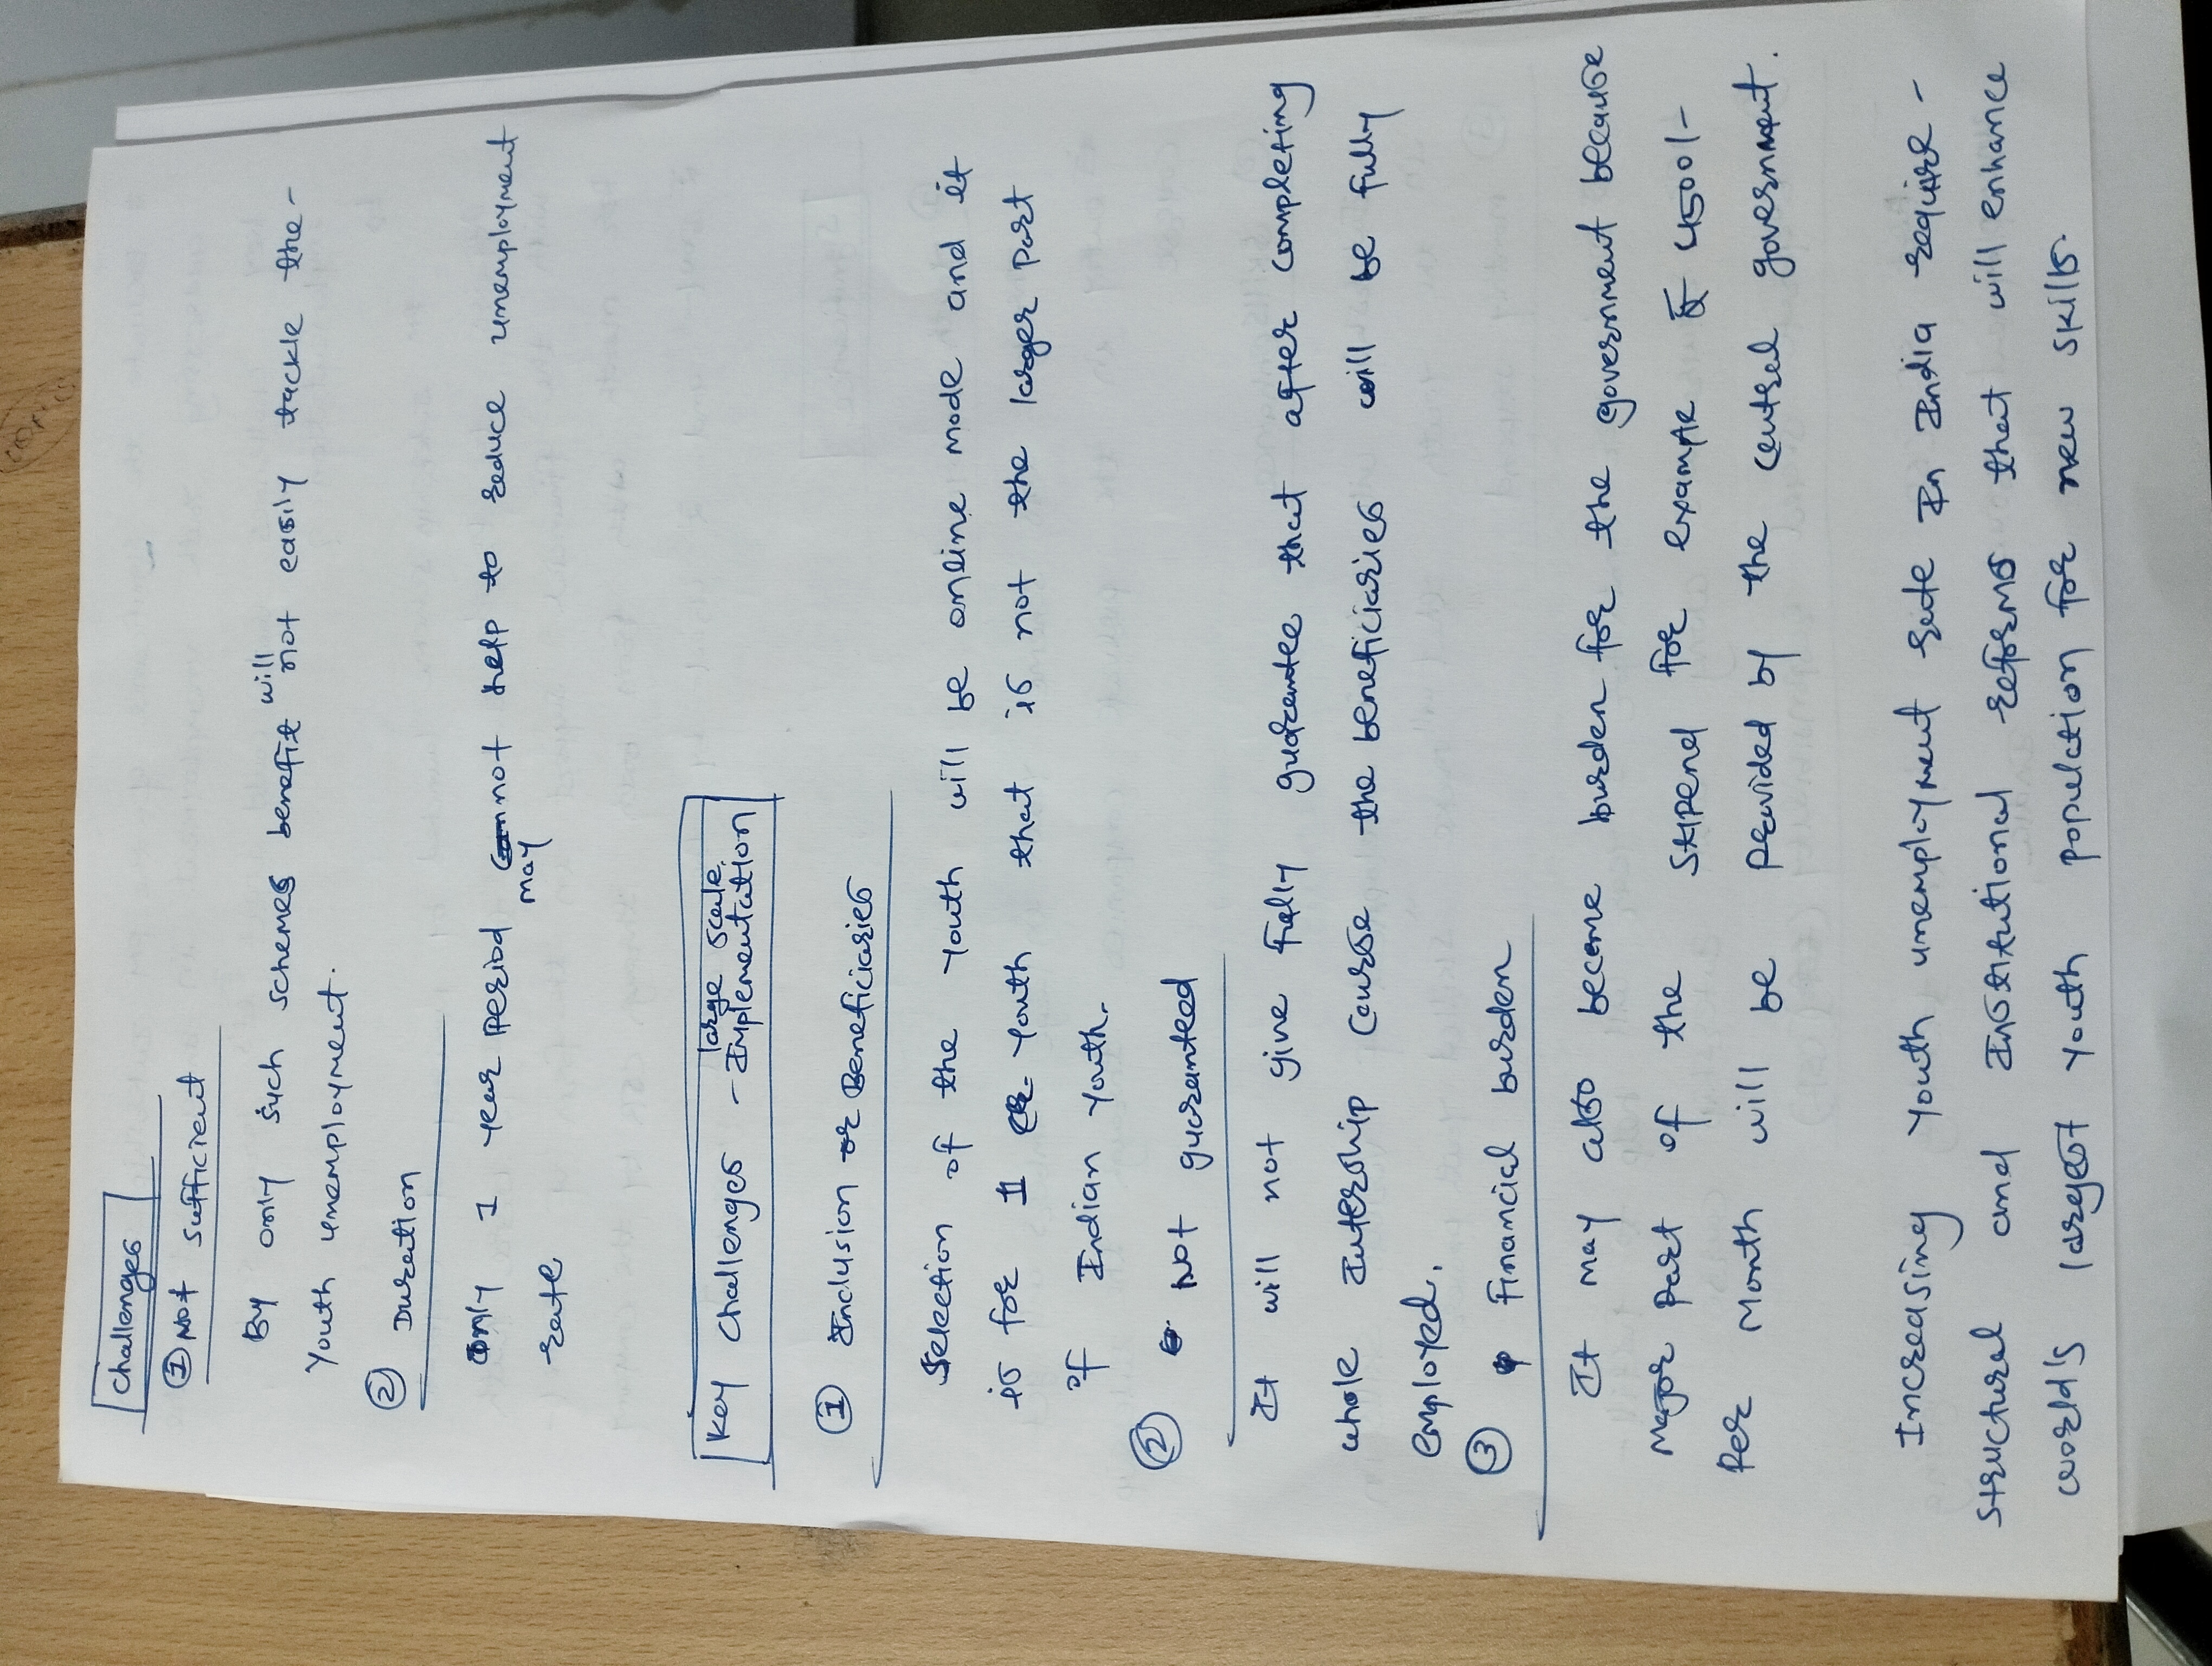 Challenges
① Not sufficient
By only such schemes benefit will not easily tackle the-
Youth unemployment.
② Duration
Only 1 year period may not help to reduce unemployment
rate
Key Challenges - large scale Implementation
① Inclusion or Beneficiaries
Selection of the youth will be online mode and it
is for 1 youth that is not the larger part
of Indian Youth.
② Not guaranteed
It will not give fully guarantee that after completing
whole Intership Course the beneficiaries will be fully
employed.
③ Financial burden
It may also become burden for the government because
Major part of the Stipend for example 4500/-
Per Month will be Provided by the central government.
Increasing Youth unemployment rate In India require-
structural and Institutional reforms that will enhance
world's largest youth population for new skills.